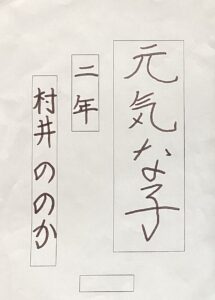 元気な子
二年
村井ののか